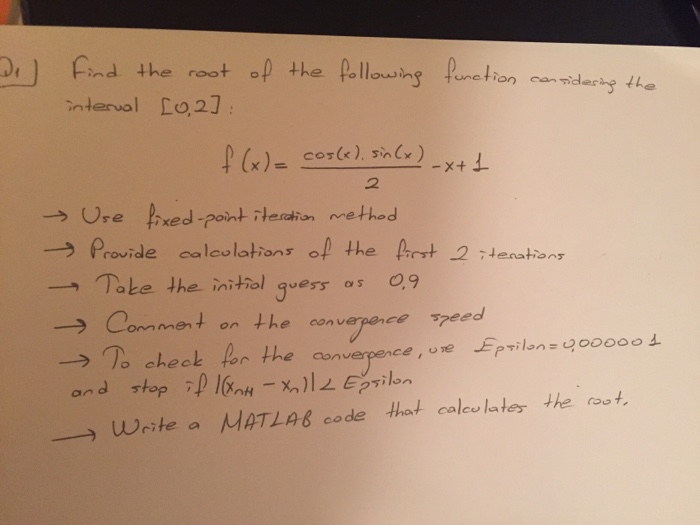 Q1) Find the root of the following function considering the
interval [0,2]:
f(x)= cos(x). sin(x) / 2 -x+1
→ Use fixed-point iteration method
→ Provide calculations of the first 2 iterations
→ Take the initial guess as 0,9
→ Comment on the convergence speed
→ To check for the convergence, use Epsilon=0,000001
and stop if |(xn+1 - xn)| < Epsilon
→ Write a MATLAB code that calculates the root.